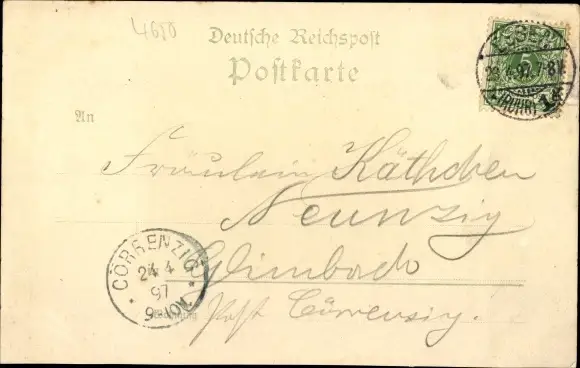 4680
Deutsche Reichspost
Postkarte
ESSEN
23.4.97. 8
(RUHR) 1
5
An
Fräulein Käthchen
Neunzig
Glimbach
Post Cörrenzig.
CÖRRENZIG
24 4
97
9-10V.